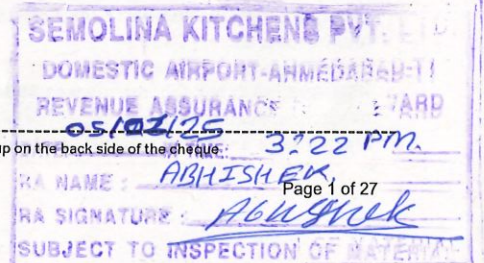 SEMOLINA KITCHENS PVT.
DOMESTIC AIRPORT-AHMEDABAD-T1
REVENUE ASSURANCE
05/02/25 3:22 PM.
up on the back side of the cheque
RA NAME : ABHISHEK
Page 1 of 27
RA SIGNATURE : Abhishek
SUBJECT TO INSPECTION OF MATERIAL